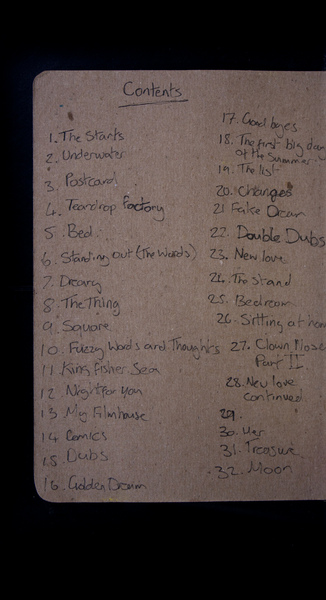 Contents
1. The Starts
2. Underwater
3. Postcard
4. Teardrop Factory
5. Bed.
6. Standing out (The Words)
7. Dreary
8. The Thing
9. Square
10. Fuzzy Words and Thoughts
11 King fisher Sea
12 Night for You
13 My Filmhouse
14 Comics
15 Dubs
16. Golden Dream
17. Good byes
18. The first big day
of the Summer
19. The list
20. Changes
21 False Dream
22. Double Dubs
23. New love
24. The Stand
25. Bedroom
26. Sitting at home
27. Clown Nose
Part II
28. New love
continued
29.
30. Her
31. Treasure
32. Moon